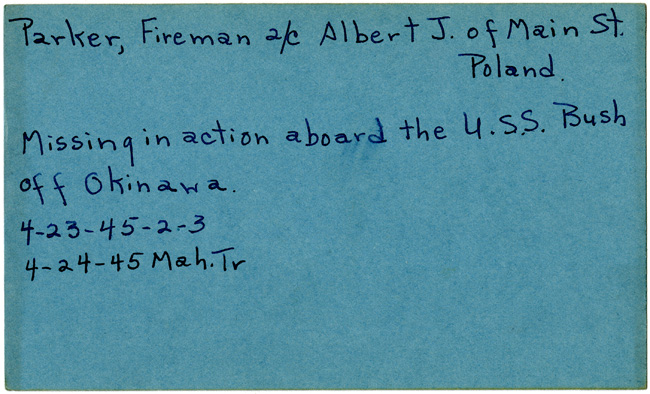 Parker, Fireman 2/c Albert J. of Main St.
Poland.
Missing in action aboard the U.S.S. Bush
off Okinawa.
4-23-45-2-3
4-24-45 Mah. Tr